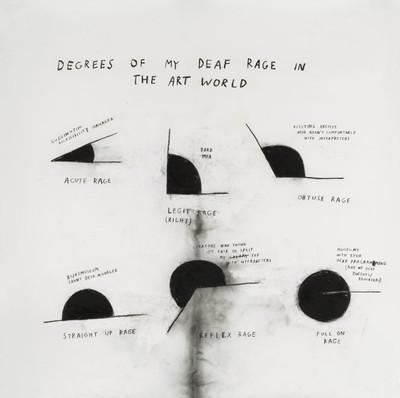 DEGREES OF MY DEAF RAGE IN
THE ART WORLD
GUGGENHEIM
ACCESSIBILITY MANAGER
ACUTE RAGE
BARD
MFA
LEGIT RAGE
(RIGHT)
VISITING ARTISTS
WHO AREN'T COMFORTABLE
WITH INTERPRETERS
OBTUSE RAGE
RIJKSMUSEUM
FRONT DESK MANAGER
STRAIGHT UP RAGE
CURATORS WHO THINK
IT'S FAIR TO SPLIT
MY FEE
WITH INTERPRETERS
REFLEX RAGE
MUSEUMS
WITH ZERO
DEAF PROGRAMMING
(AND NO DEAF
DOCENTS/
EDUCATORS)
FULL ON
RAGE